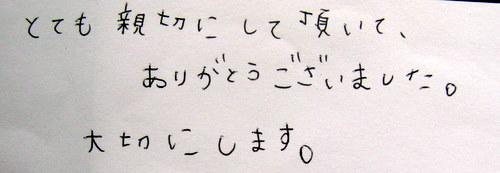 とても親切にして頂いて、
ありがとうございました。
大切にします。